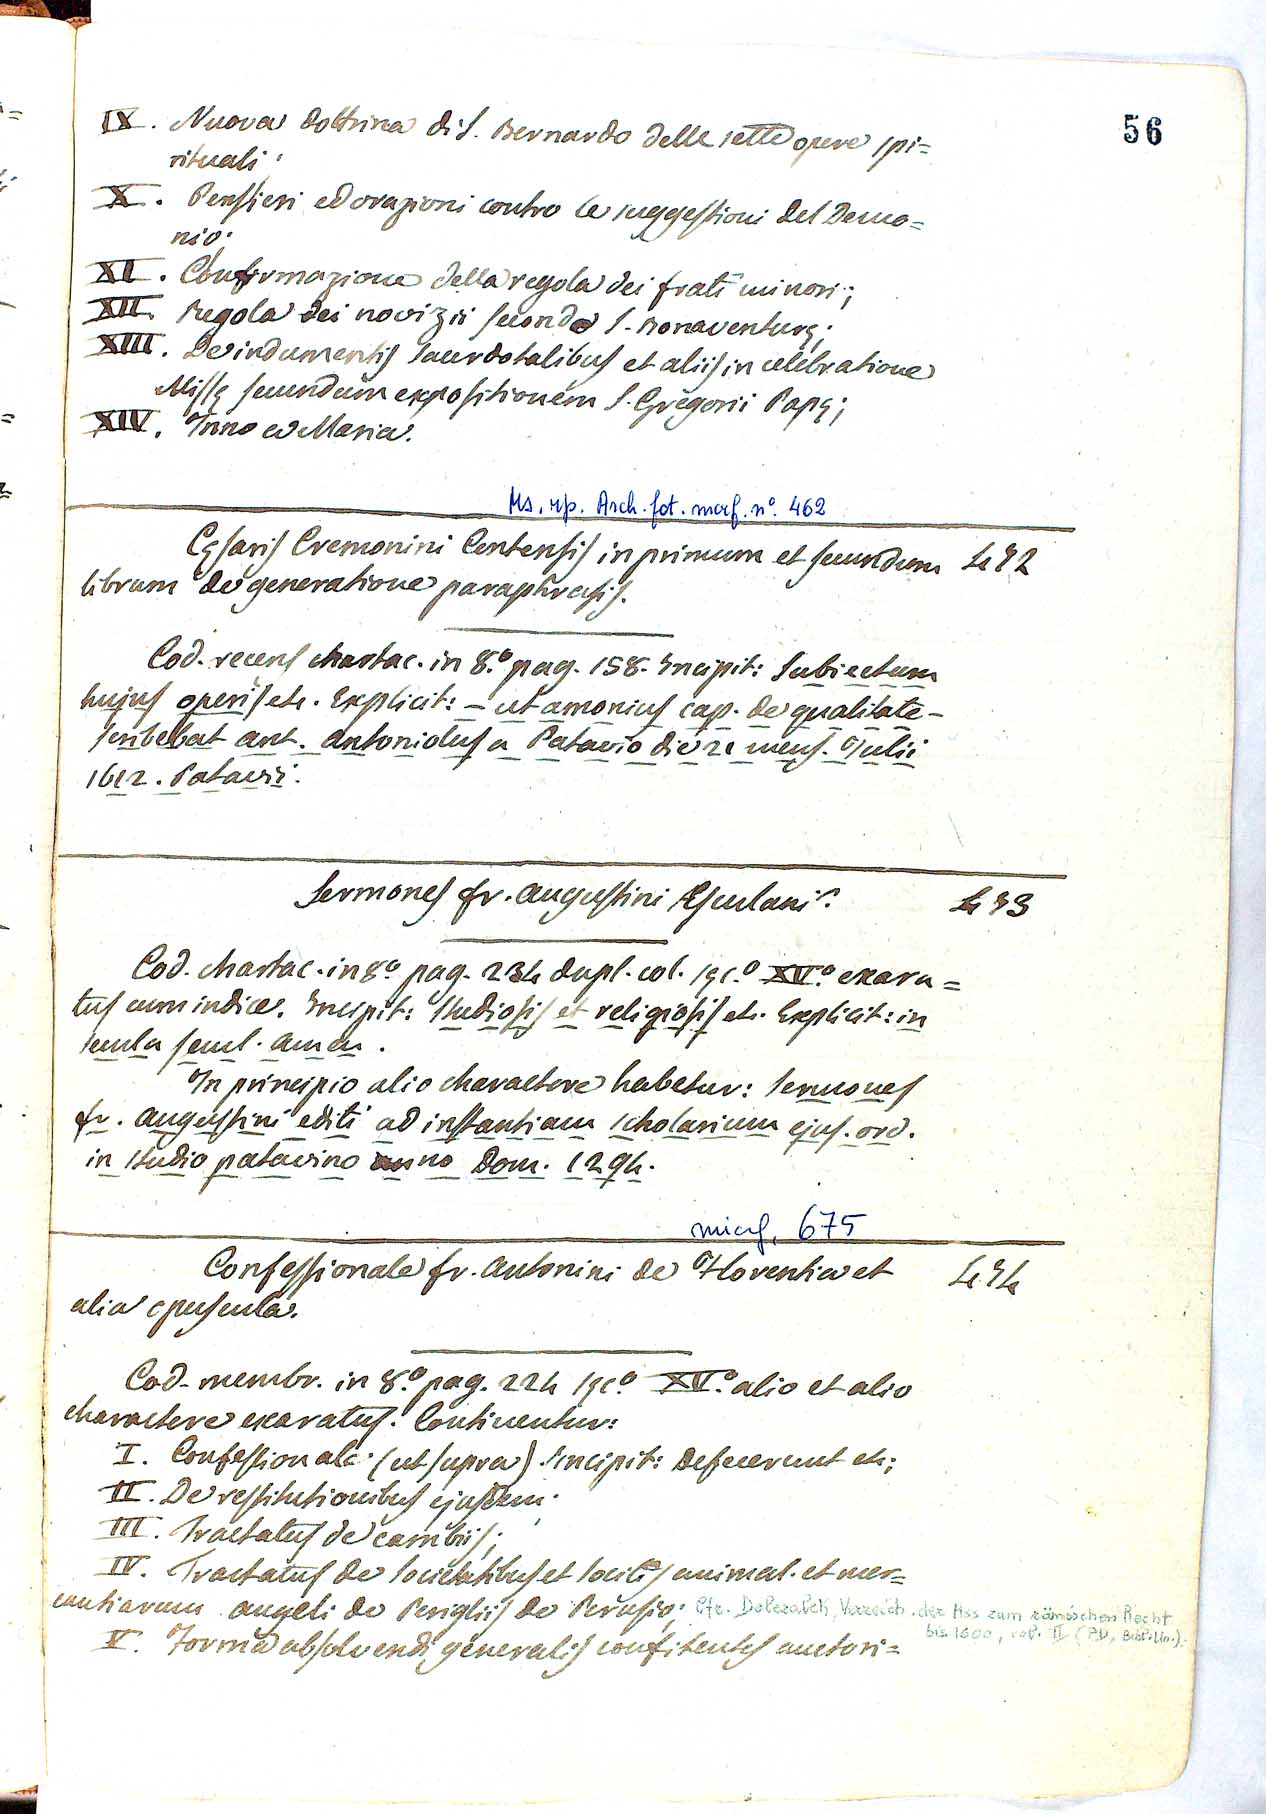 56
IX. Nuova dottrina di S. Bernardo delle sette opere spi=
rituali;
X. Pensieri ed orazioni contro le suggestioni del Demo=
nio;
XI. Confirmazione della regola dei frati minori;
XII. Regola dei novizii secondo S. Bonaventurę;
XIII. De indumentis sacerdotalibus et aliis in celebratione
Missę secundum expositionem S. Gregorii Papę;
XIV. Inno a Maria.
Ms. rip. Arch. fot. marf. n.º 462
Cęsaris Cremonini Centensis in primum et secundum
librum de generatione paraphrasis.
Cod. recens chartac. in 8.º pag. 158. Incipit: Subiectum
hujus operis etc. Explicit: – ut amonius cap. de qualitate –
scribebat ant. antoniolus a Patavio die 21 mens. Julii
1612. Patavii.
Sermones fr. Augustini Esculani.
493
Cod. chartac. in 8º pag. 234 dupl. col. sęc.º XV.º exara=
tus cum indice. Incipit: Studiosis et religiosis etc. Explicit: in
secula secul. amen.
In principio alio charactere habetur: Sermones
fr. Augustini editi ad instantiam scholarium ejus. ord.
in studio patavino anno Dom. 1294.
micrf. 675
Confessionale fr. Antonini de Florentia et
494
alia opuscula.
Cod. membr. in 8.º pag. 224 sęc.º XV.º alio et alio
charactere exaratus. Continentur:
I. Confessionale (ut supra) Incipit: Defecerunt etc;
II. De restitutionibus ejusdem;
III. Tractatus de cambiis;
IV. Tractatus de societatibus et sociis animal. et mer=
cantiarum angeli de Perigliis de Perusio; Cfr. Dolezalek, Verzeich. der Hss zum römischen Recht
bis 1600, vol. II (PD, Bibl. Un.).
V. Forma absolvendi generalis confitentes auctori=